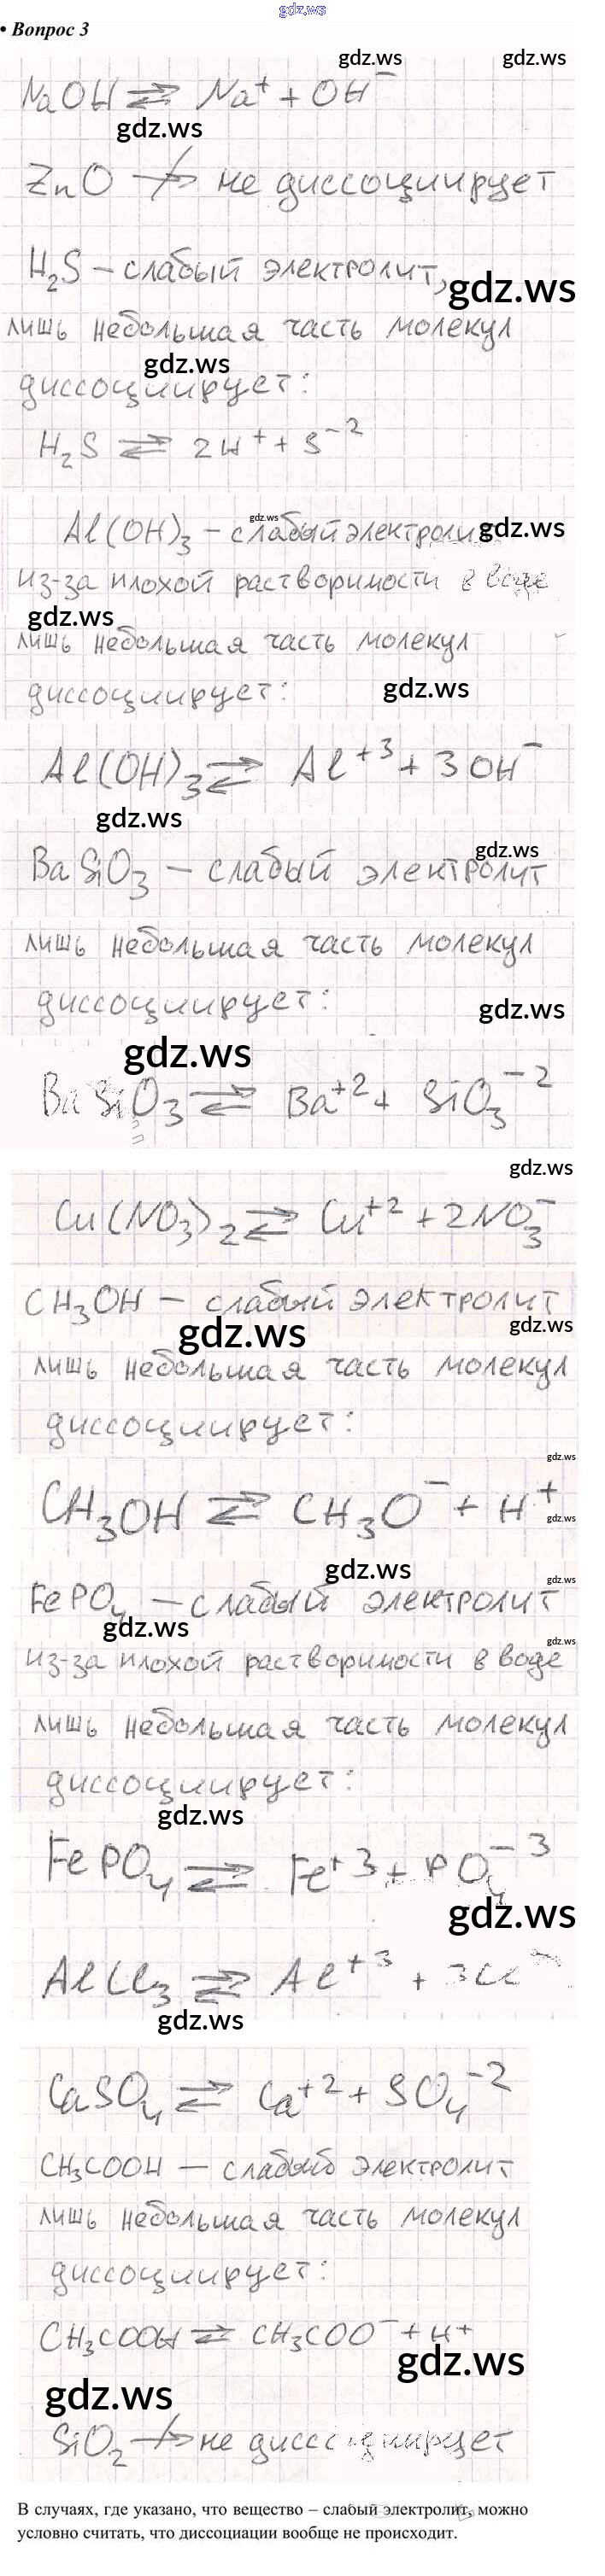 gdz.ws
• Вопрос 3
gdz.ws gdz.ws
NaOH ⇄ Na⁺ + OH⁻
gdz.ws
ZnO ↛ не диссоциирует
H₂S – слабый электролит,
gdz.ws
лишь небольшая часть молекул
gdz.ws
диссоциирует:
H₂S ⇄ 2H⁺ + S⁻²
gdz.ws
Al(OH)₃ – слабый электролит
gdz.ws
из-за плохой растворимости в воде
gdz.ws
лишь небольшая часть молекул
диссоциирует:
gdz.ws
Al(OH)₃ ⇄ Al⁺³ + 3OH⁻
gdz.ws
gdz.ws
BaSiO₃ – слабый электролит
лишь небольшая часть молекул
диссоциирует:
gdz.ws
gdz.ws
BaSiO₃ ⇄ Ba⁺² + SiO₃⁻²
gdz.ws
Cu(NO₃)₂ ⇄ Cu⁺² + 2NO₃⁻
CH₃OH – слабый электролит
gdz.ws gdz.ws
лишь небольшая часть молекул
диссоциирует:
gdz.ws
CH₃OH ⇄ CH₃O⁻ + H⁺
gdz.ws
gdz.ws
gdz.ws
FePO₄ – слабый электролит
gdz.ws
gdz.ws
из-за плохой растворимости в воде
лишь небольшая часть молекул
диссоциирует:
gdz.ws
FePO₄ ⇄ Fe⁺³ + PO₄⁻³
gdz.ws
AlCl₃ ⇄ Al⁺³ + 3Cl⁻
gdz.ws
CaSO₄ ⇄ Ca⁺² + SO₄⁻²
CH₃COOH – слабый электролит
лишь небольшая часть молекул
диссоциирует:
CH₃COOH ⇄ CH₃COO⁻ + H⁺
gdz.ws
gdz.ws
SiO₂ ↛ не диссоциирует
В случаях, где указано, что вещество – слабый электролит, можно
условно считать, что диссоциации вообще не происходит.